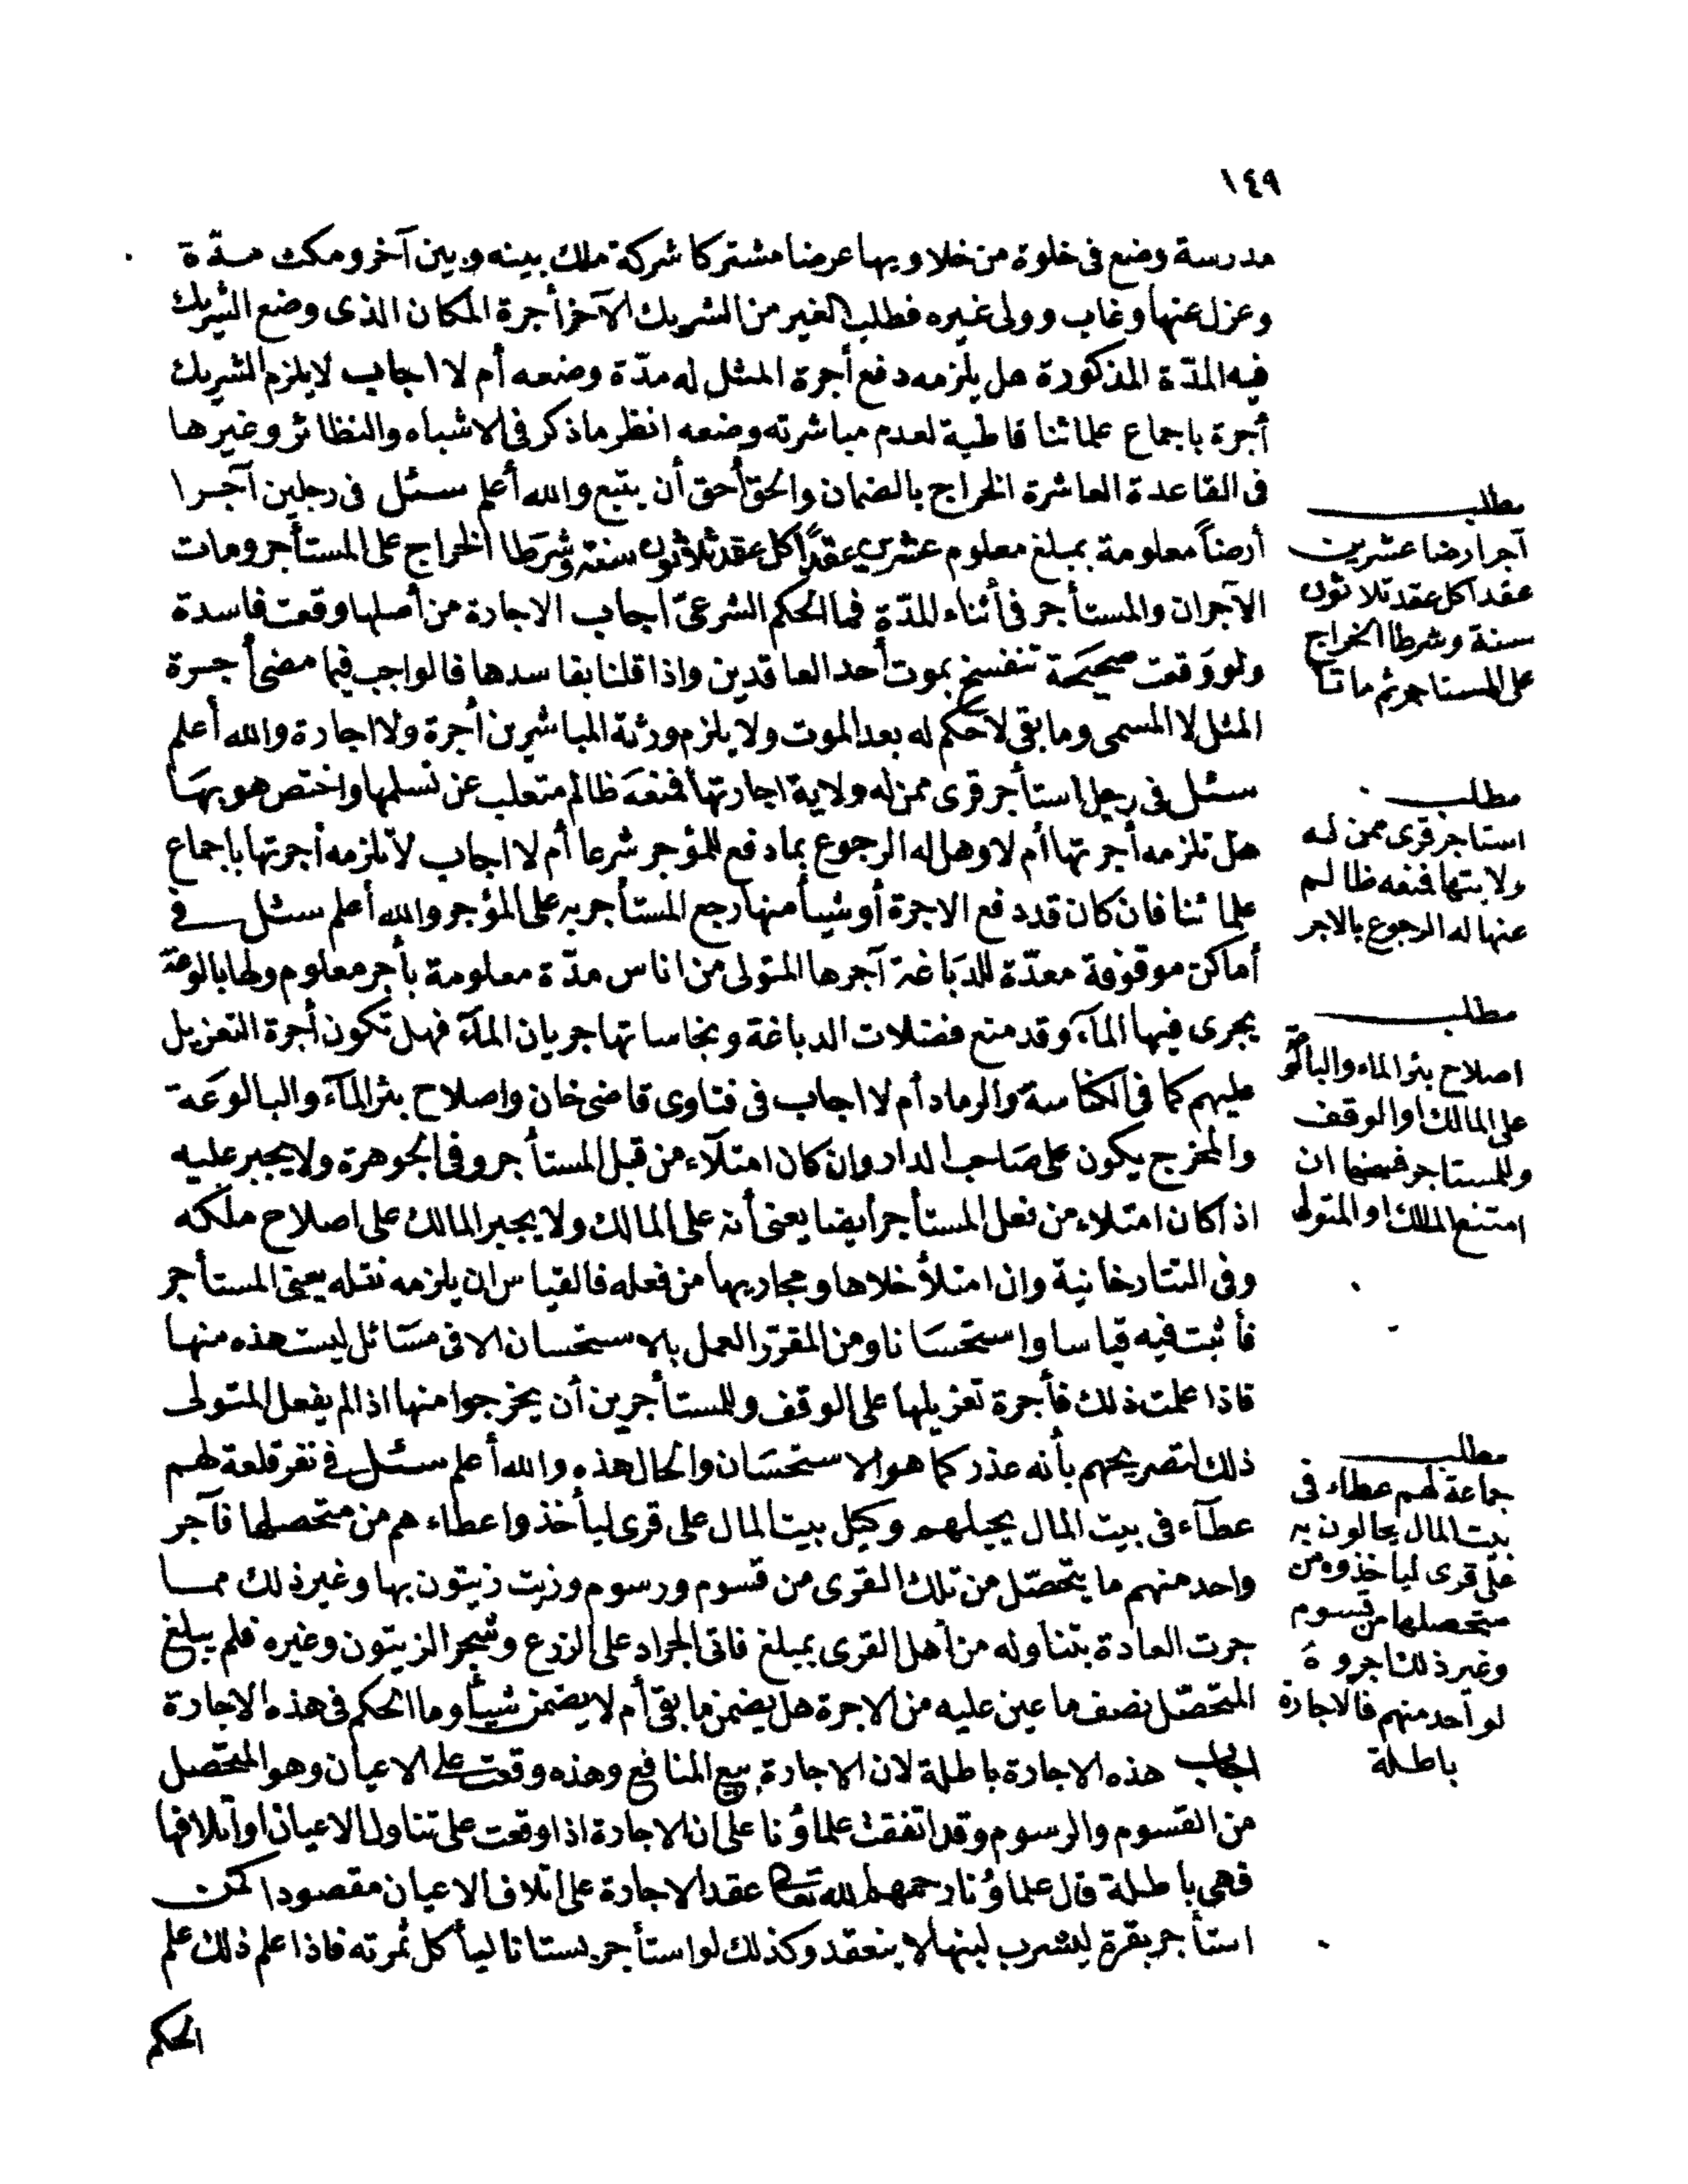 ١٤٩
مدرسة وضع فى خلوة من خلاويها عرضا مشتركا شركة ملك بينه وبين آخر ومكث مدّة
وعزل عنها وغاب وولى غيره فطلب الغير من الشريك الآخر أجرة المكان الذى وضع الشريك
فيه المدّة المذكورة هل يلزمه دفع أجرة المثل له مدّة وضعه أم لا اجاب لا يلزم الشريك
أجرة باجماع علمائنا قاطبة لعدم مباشرته وضعه انظر ماذكر فى الاشباه والنظائر وغيرها
فى القاعدة العاشرة الخراج بالضمان والحق أحق أن يتبع والله أعلم سئل فى رجلين آجرا
أرضاً معلومة بمبلغ معلوم عشرين عقداً كل عقد ثلاثون سنة وشرطا الخراج على المستأجر ومات
الآجران والمستأجر فى أثناء المدّة فما الحكم الشرعىّ اجاب الاجارة من أصلها وقعت فاسدة
ولو وقعت صحيحة تنفسخ بموت أحد العاقدين واذا قلنا بفاسدها فالواجب فيما مضى أجرة
المثل لا المسمى وما بقى لا حكم له بعد الموت ولا يلزم ورثة المباشرين أجرة ولا اجارة والله أعلم
سئل فى رجل استأجر قرى ممن له ولاية اجارتها فمنعه ظالم متغلب عن تسلمها واختص هو بها
هل تلزمه أجرتها أم لا وهل له الرجوع بما دفع للمؤجر شرعا أم لا اجاب لا تلزمه أجرتها باجماع
علمائنا فان كان قد دفع الاجرة أو شيأ منها رجع المستأجر به على المؤجر والله أعلم سئل فى
أماكن موقوفة معدّة للدباغة آجرها المتولى من اناس مدّة معلومة بأجر معلوم ولها بالوعة
يجرى فيها الماء وقد منع فضلات الدباغة ونجاساتها جريان الماء فهل تكون أجرة التعزيل
عليهم كما فى الكناسة والرماد أم لا اجاب فى فتاوى قاضى خان واصلاح بئر الماء والبالوعة
والمخرج يكون على صاحب الدار وان كان امتلاء من قبل المستأجر وفى الجوهرة ولا يجبر عليه
اذا كان امتلاء من فعل المستأجر أيضا يعنى أنه على المالك ولا يجبر المالك على اصلاح ملكه
وفى التتارخانية وان امتلأ خلاها ومجاريها من فعله فالقياس ان يلزمه نقله يعنى المستأجر
فأثبت فيه قياسا واستحسانا ومن المقرّر العمل بالاستحسان الا فى مسائل ليست هذه منها
فاذا علمت ذلك فأجرة تعزيلها على الوقف وللمستأجرين أن يخرجوا منها اذا لم يفعل المتولى
ذلك لتصريحهم بأنه عذر كما هو الاستحسان والحال هذه والله أعلم سئل فى نفر قلعة لهم
عطاء فى بيت المال يحيلهم وكيل بيت المال على قرى ليأخذوا عطاءهم من متحصلها فآجر
واحد منهم ما يتحصّل من تلك القرى من قسوم ورسوم وزيت زيتون بها وغير ذلك مما
جرت العادة بتناوله من أهل القرى بمبلغ فاتى الجراد على الزرع وشجر الزيتون وغيره فلم يبلغ
المتحصّل نصف ما عين عليه من الاجرة هل يضمن ما بقى أم لا يضمن شيأ وما الحكم فى هذه الاجارة
اجاب هذه الاجارة باطلة لان الاجارة بيع المنافع وهذه وقعت على الاعيان وهو المتحصل
من القسوم والرسوم وقد اتفقت علماؤنا على ان الاجارة اذا وقعت على تناول الاعيان او اتلافها
فهى باطلة قال علماؤنا رحمهم الله تعالى عقد الاجارة على اتلاف الاعيان مقصودا كمن
استأجر بقرة ليشرب لبنها لا ينعقد وكذلك لو استأجر بستانا ليأكل ثمرته فاذا علم ذلك علم
الحكم
مطلب
آجرا رضا عشرين
عقدا كل عقد ثلاثون
سنة وشرطا الخراج
على المستاجر ثم ماتا
مطلب
استاجر قرى ممن له
ولايتها فمنعه ظالم
عنها له الرجوع بالاجر
مطلب
اصلاح بئر الماء والبالوعة
على المالك او الوقف
وللمستاجر فسخها ان
امتنع المالك او المتولى
مطلب
جماعة لهم عطاء فى
بيت المال يحالون به
على قرى لياخذوه من
متحصلها من قسوم
وغير ذلك فاجروه
لواحد منهم فالاجارة
باطلة